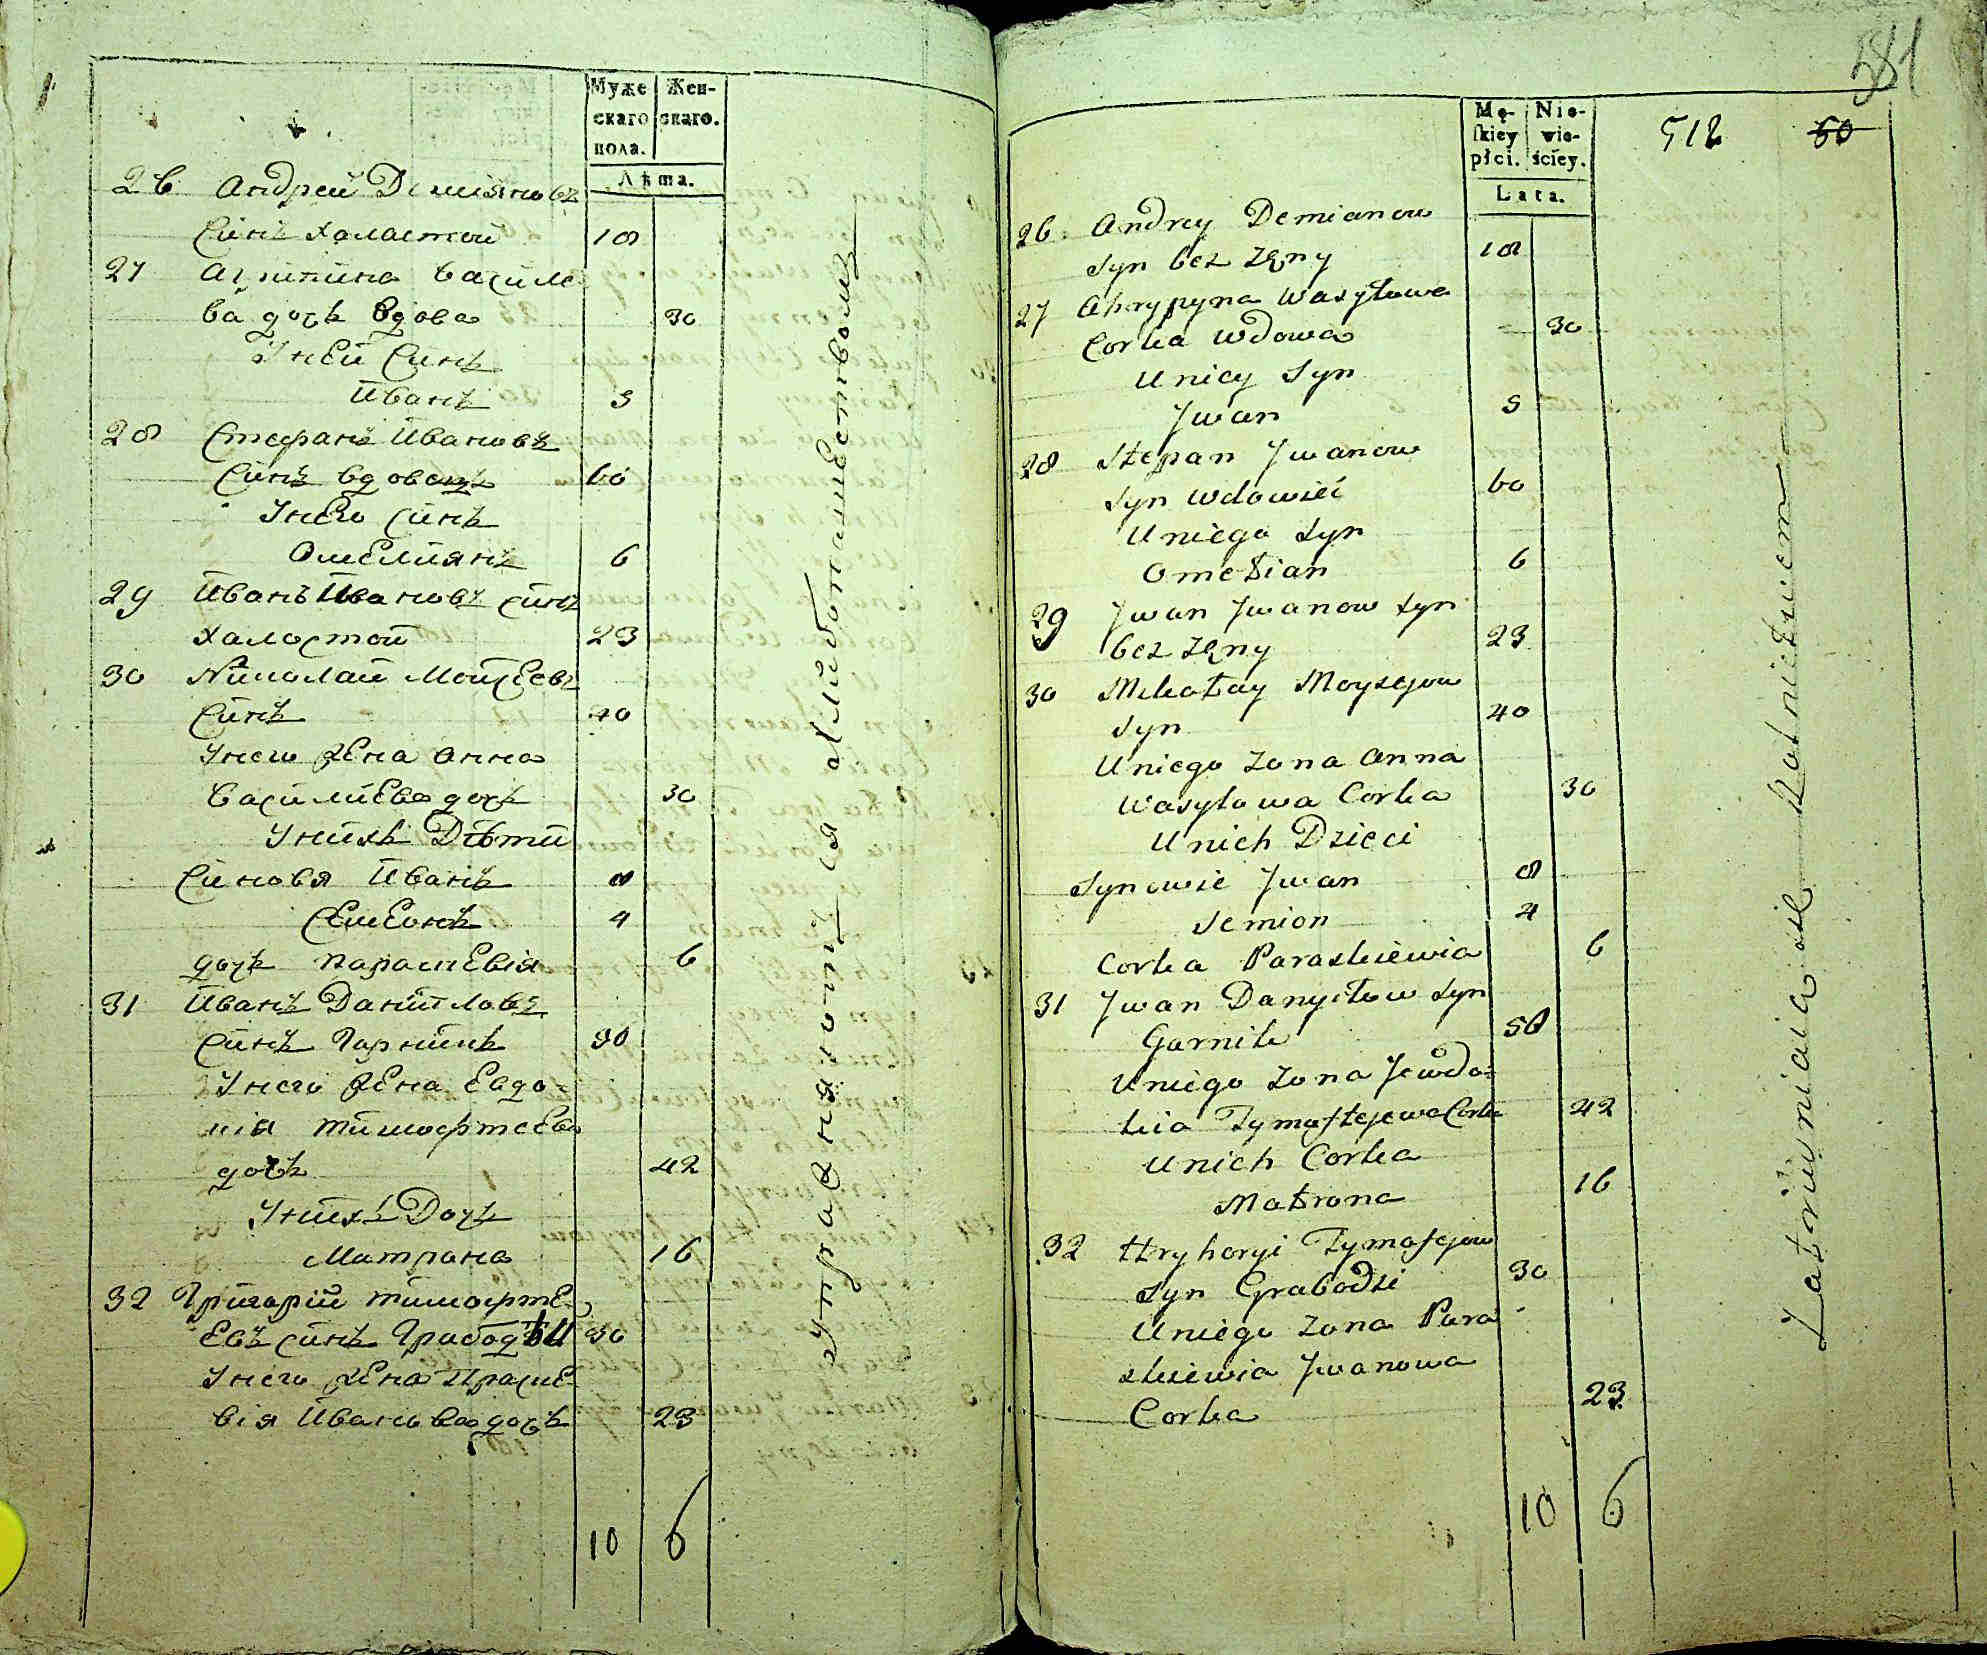 Муже Жен-
скаго скаго.
пола.
Лѣта.
26 Андрей Демiяновъ
Синъ халастой 18
27 Агрипина Василе
ва дочъ вдова 30
У ней Синъ
Иванъ 5
28 Стефанъ Ивановъ
Синъ вдовецъ 60
У него синъ
Омелиянъ 6
29 Иванъ Ивановъ синъ
халостой 23
30 Николай Мойсеевъ
Синъ 40
У него жена Анна
Василиева дочъ 30
У нихъ Дѣти
Синовя Иванъ 8
Семенъ 4
дочъ Параскевiя 6
31 Иванъ Данииловъ
Синъ Гарникъ 50
У него жена Евдо-
кiя Тимофтеева
дочъ 42
У нихъ Дочъ
Матрона 16
32 Григорий Тимофте-
евъ синъ Грабодзы 30
У него жена Праске-
вiя Иванова дочъ 23
10 6
Упражняются хлиботашествомъ
581
512 60
Mę- Nie-
skiey wie-
płci. ściey.
Lata.
26 Andrey Demianow
Syn bez Żeny 18
27 Ahrypyna Wasyłowa
Corka Wdowa 30
U niey Syn
Jwan 5
28 Stepan Jwanow
Syn Wdowieć 60
U niego Syn
Omelian 6
29 Jwan Jwanow Syn
bez Żeny 23
30 Mikołay Moysejow
Syn 40
U niego Zona Anna
Wasyłowa Corka 30
U nich Dzieci
Synowie Jwan 8
Semion 4
Corka Paraskiewia 6
31 Jwan Danyiłow Syn
Garnik 50
U niego Zona Jewdo-
kia Tymoftejewa Corka 42
U nich Corka
Matrona 16
32 Hryhoryi Tymofejow
Syn Grabodzi 30
U niego Zona Para
skiewia Jwanowa
Corka 23
10 6
Zatrudniaią się Rolnictwem